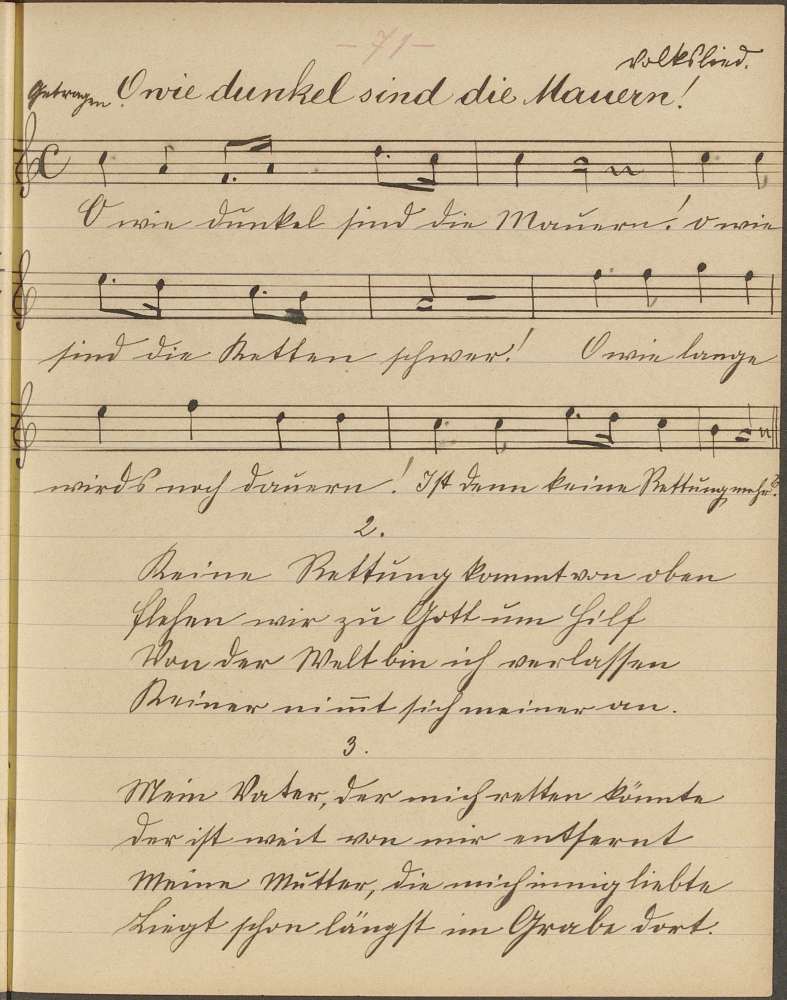 – 71 –
Volkslied.
Getragen O wie dunkel sind die Mauern!
O wie dunkel sind die Mauern! o wie
sind die Ketten schwer! O wie lange
wirds noch dauern! Ist denn keine Rettung mehr?
2.
Keine Rettung kommt von oben
flehen wir zu Gott um Hilf
Von der Welt bin ich verlassen
Keiner nim̅t sich meiner an.
3.
Mein Vater, der mich retten könnte
der ist weit von mir entfernt
Meine Mutter, die mich innig liebte
Liegt schon längst im Grabe dort.